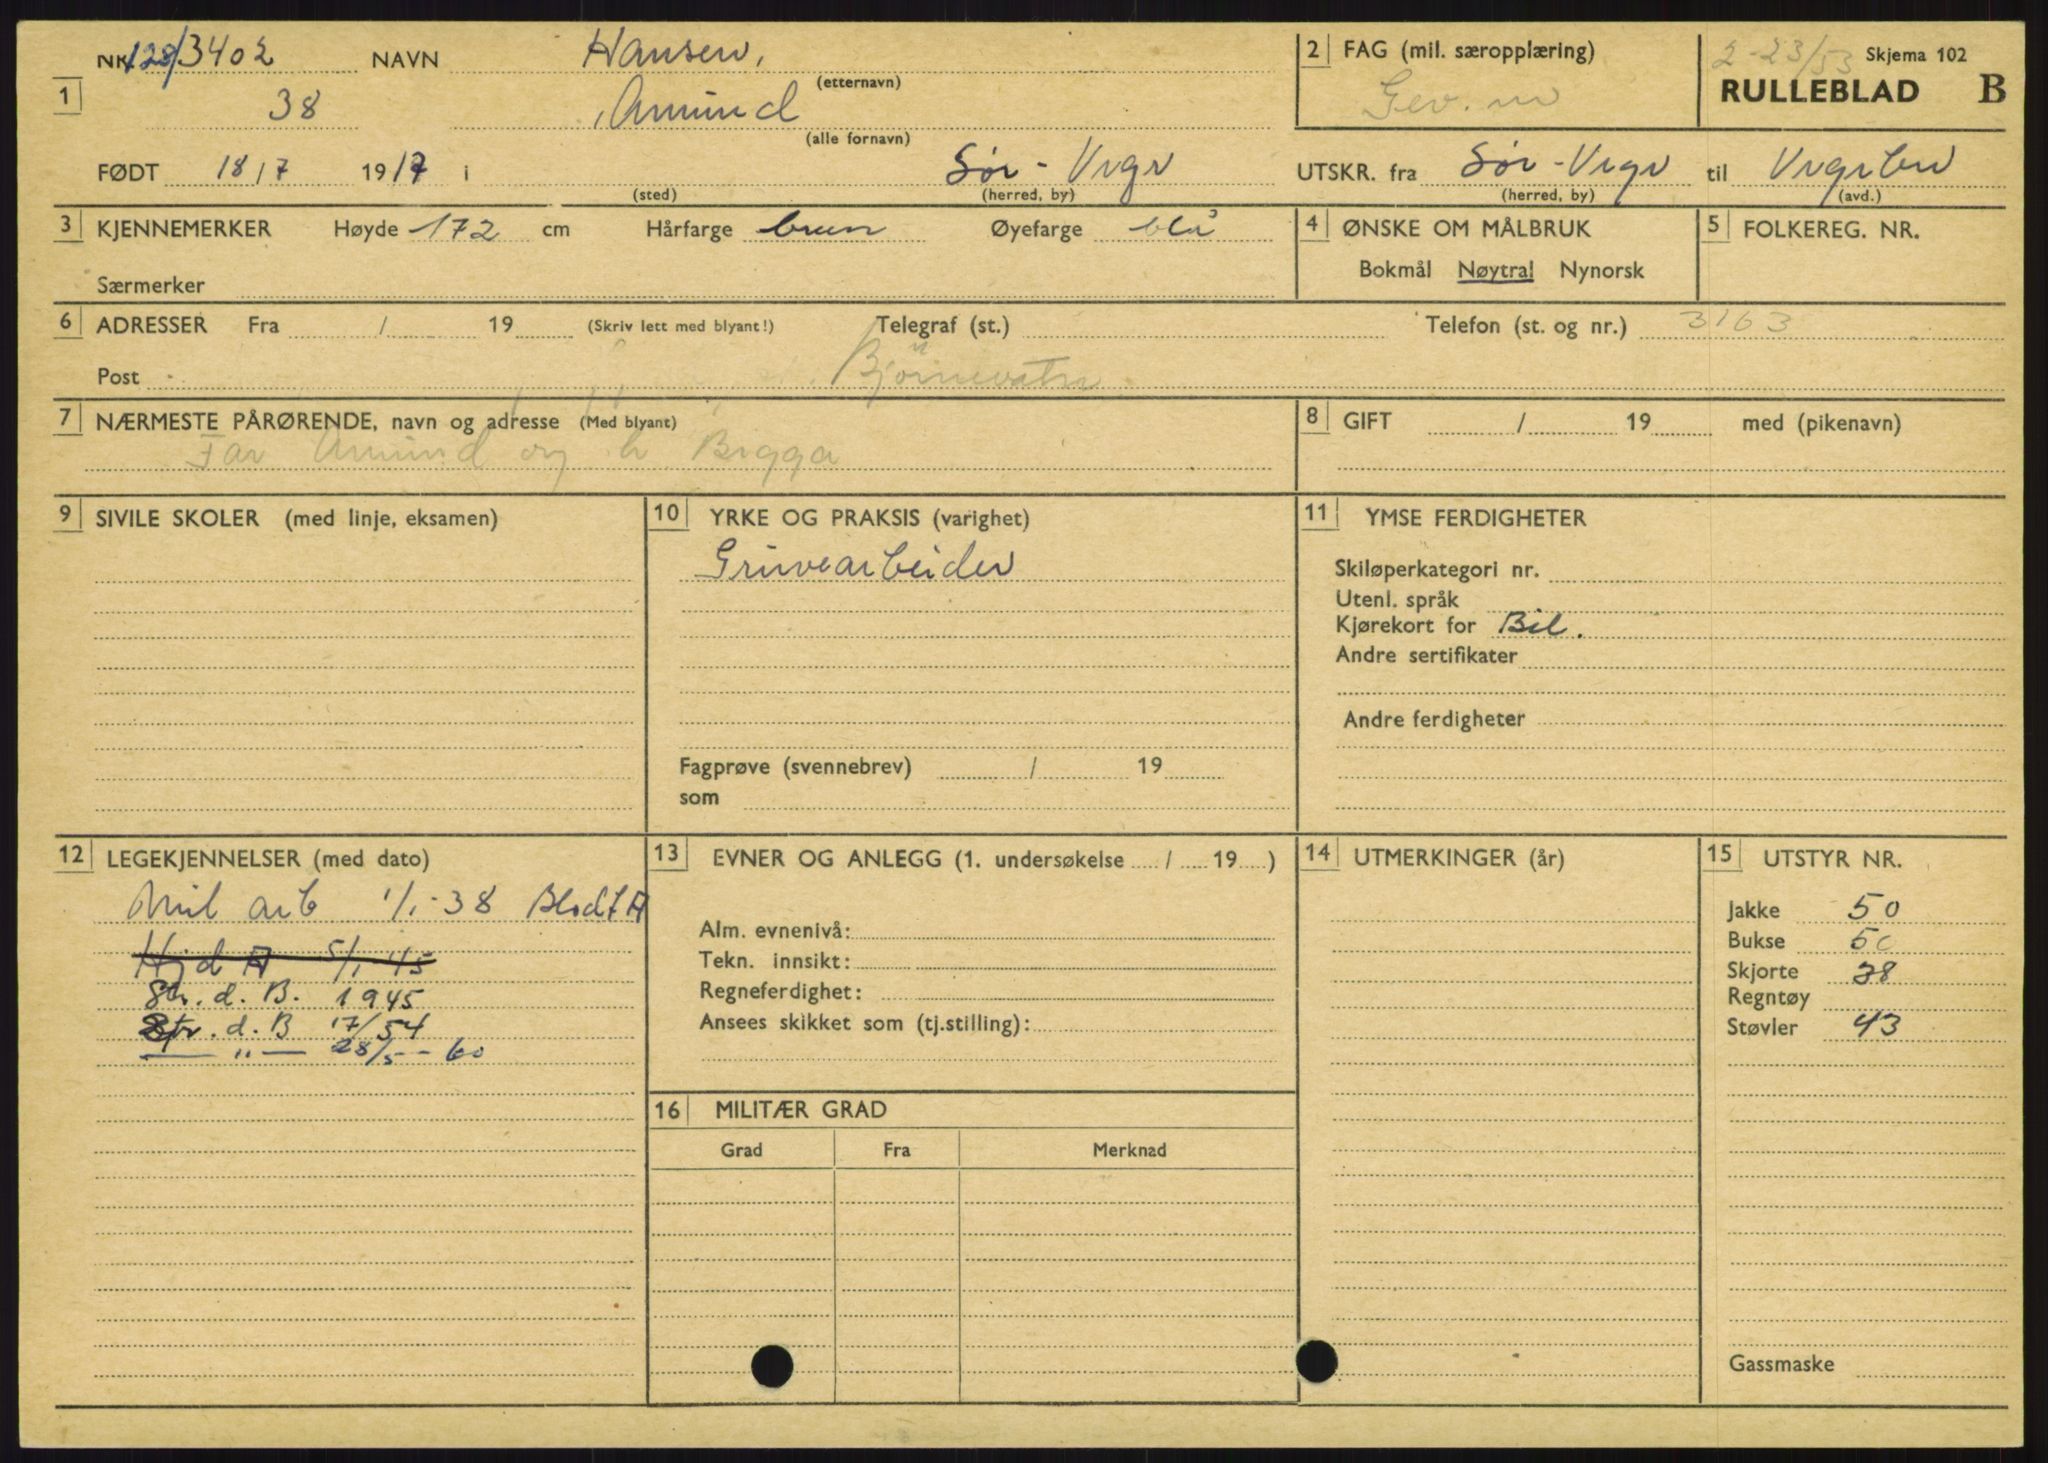 NR. 128/3402 NAVN Hansen, 2 FAG (mil. særopplæring) 2-23/53 Skjema 102
(etternavn) Gev. m RULLEBLAD B
1 38 Amund
(alle fornavn)
FØDT 18/7 1917 i Sør-Vrgr UTSKR. fra Sør-Vrgr til Vrgrbn
(sted) (herred, by) (herred, by) (avd.)
3 KJENNEMERKER Høyde 172 cm Hårfarge brun Øyefarge blå 4 ØNSKE OM MÅLBRUK 5 FOLKEREG. NR.
Bokmål Nøytral Nynorsk
Særmerker
6 ADRESSER Fra / 19 (Skriv lett med blyant!) Telegraf (st.) Telefon (st. og nr.) 3163
Post Bjørnevatn
7 NÆRMESTE PÅRØRENDE, navn og adresse (Med blyant) 8 GIFT / 19 med (pikenavn)
Far Amund og h Brgga
9 SIVILE SKOLER (med linje, eksamen) 10 YRKE OG PRAKSIS (varighet) 11 YMSE FERDIGHETER
Gruvearbeider
Skiløperkategori nr.
Utenl. språk
Kjørekort for Bil.
Andre sertifikater
Andre ferdigheter
Fagprøve (svennebrev) / 19
som
12 LEGEKJENNELSER (med dato) 13 EVNER OG ANLEGG (1. undersøkelse / 19 ) 14 UTMERKINGER (år) 15 UTSTYR NR.
Mil arb 1/1-38 Blodt A
Hjd A 5/1 45
Str. d. B. 1945
Str. d. B 17/54
— " — 28/5-60
Alm. evnenivå:
Tekn. innsikt:
Regneferdighet:
Ansees skikket som (tj.stilling):
Jakke 50
Bukse 50
Skjorte 38
Regntøy
Støvler 43
16 MILITÆR GRAD
Grad Fra Merknad
Gassmaske